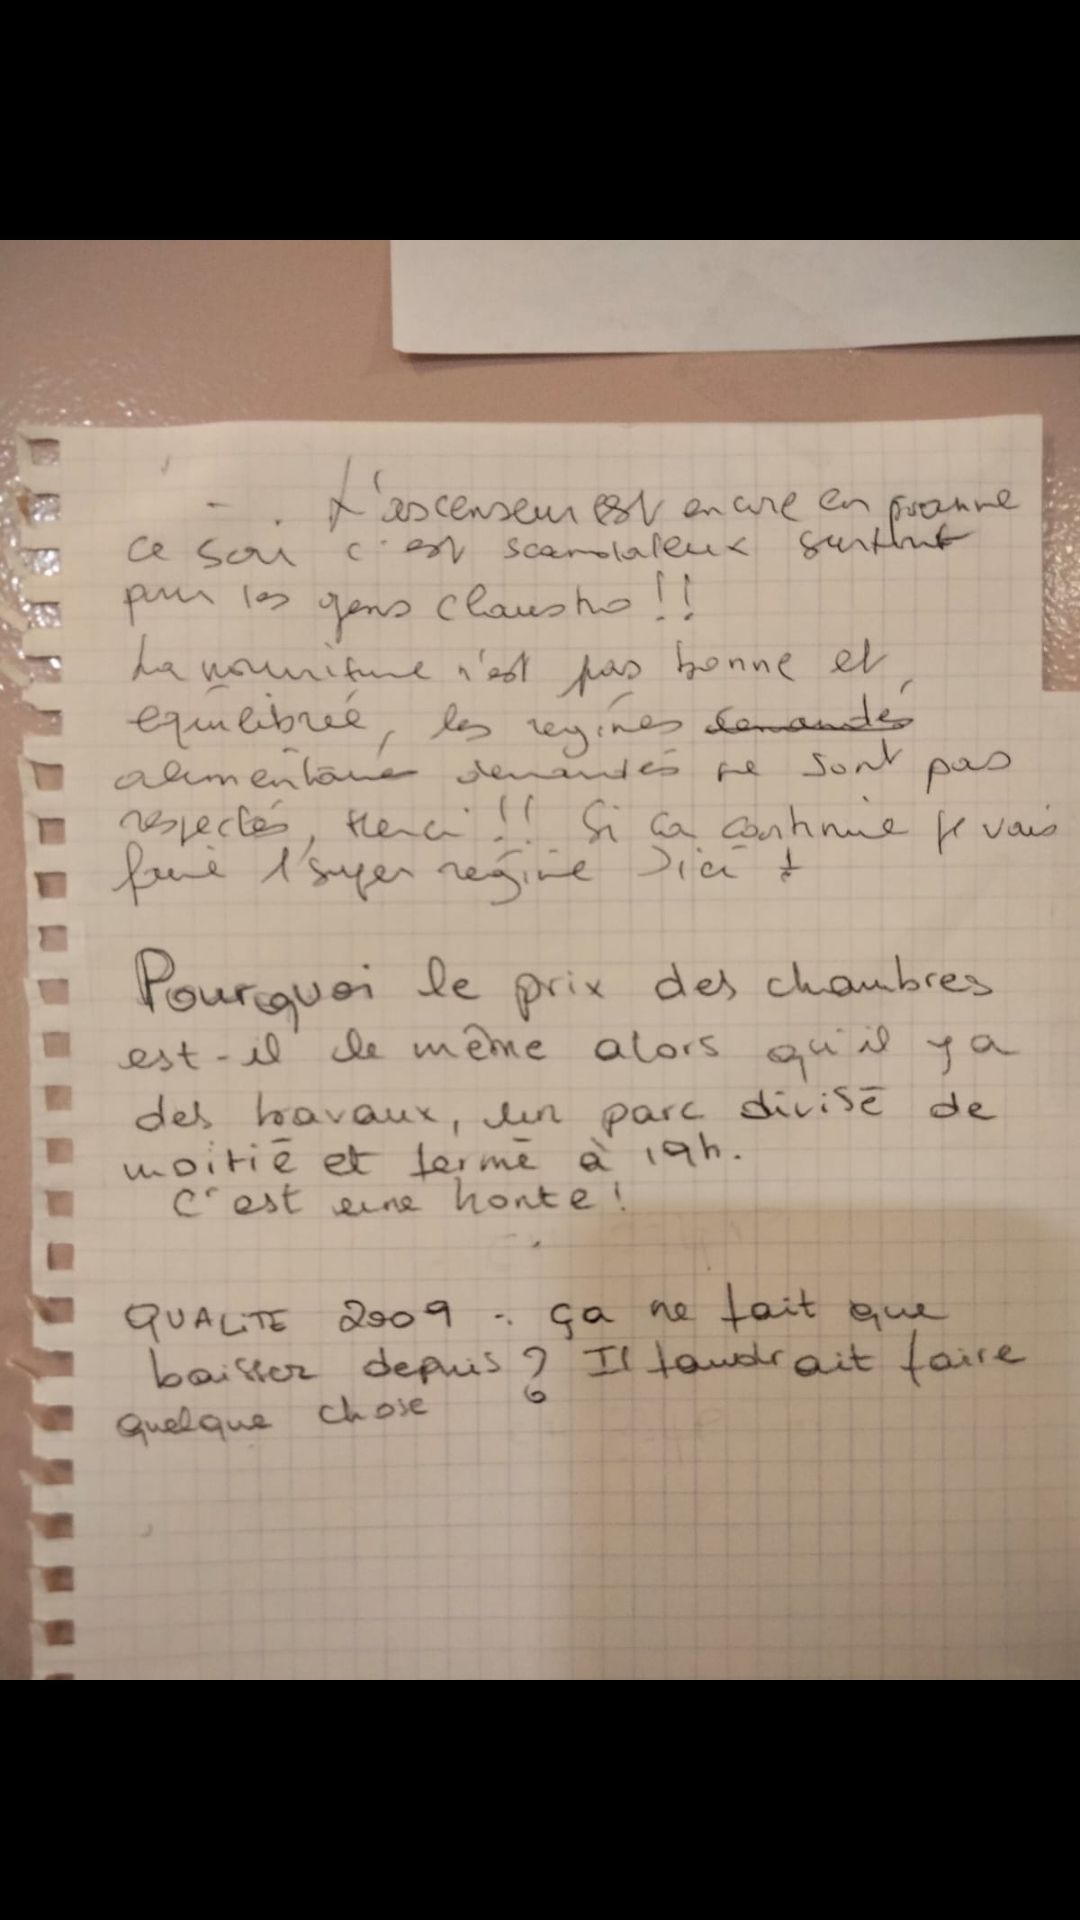 L'ascenseur est encore en panne
ce soir c'est scandaleux surtout
pour les gens claustro !!
La nourriture n'est pas bonne et
équilibrée, les régimes demandés
alimentaire demandés ne sont pas
respectés, Merci !! Si ça continue je vais
faire 1 super régime ici !
Pourquoi le prix des chambres
est-il le même alors qu'il y a
des travaux, un parc divisé de
moitié et fermé à 19h.
C'est une honte !
QUALITE 2009 : ça ne fait que
baisser depuis ? Il faudrait faire
quelque chose